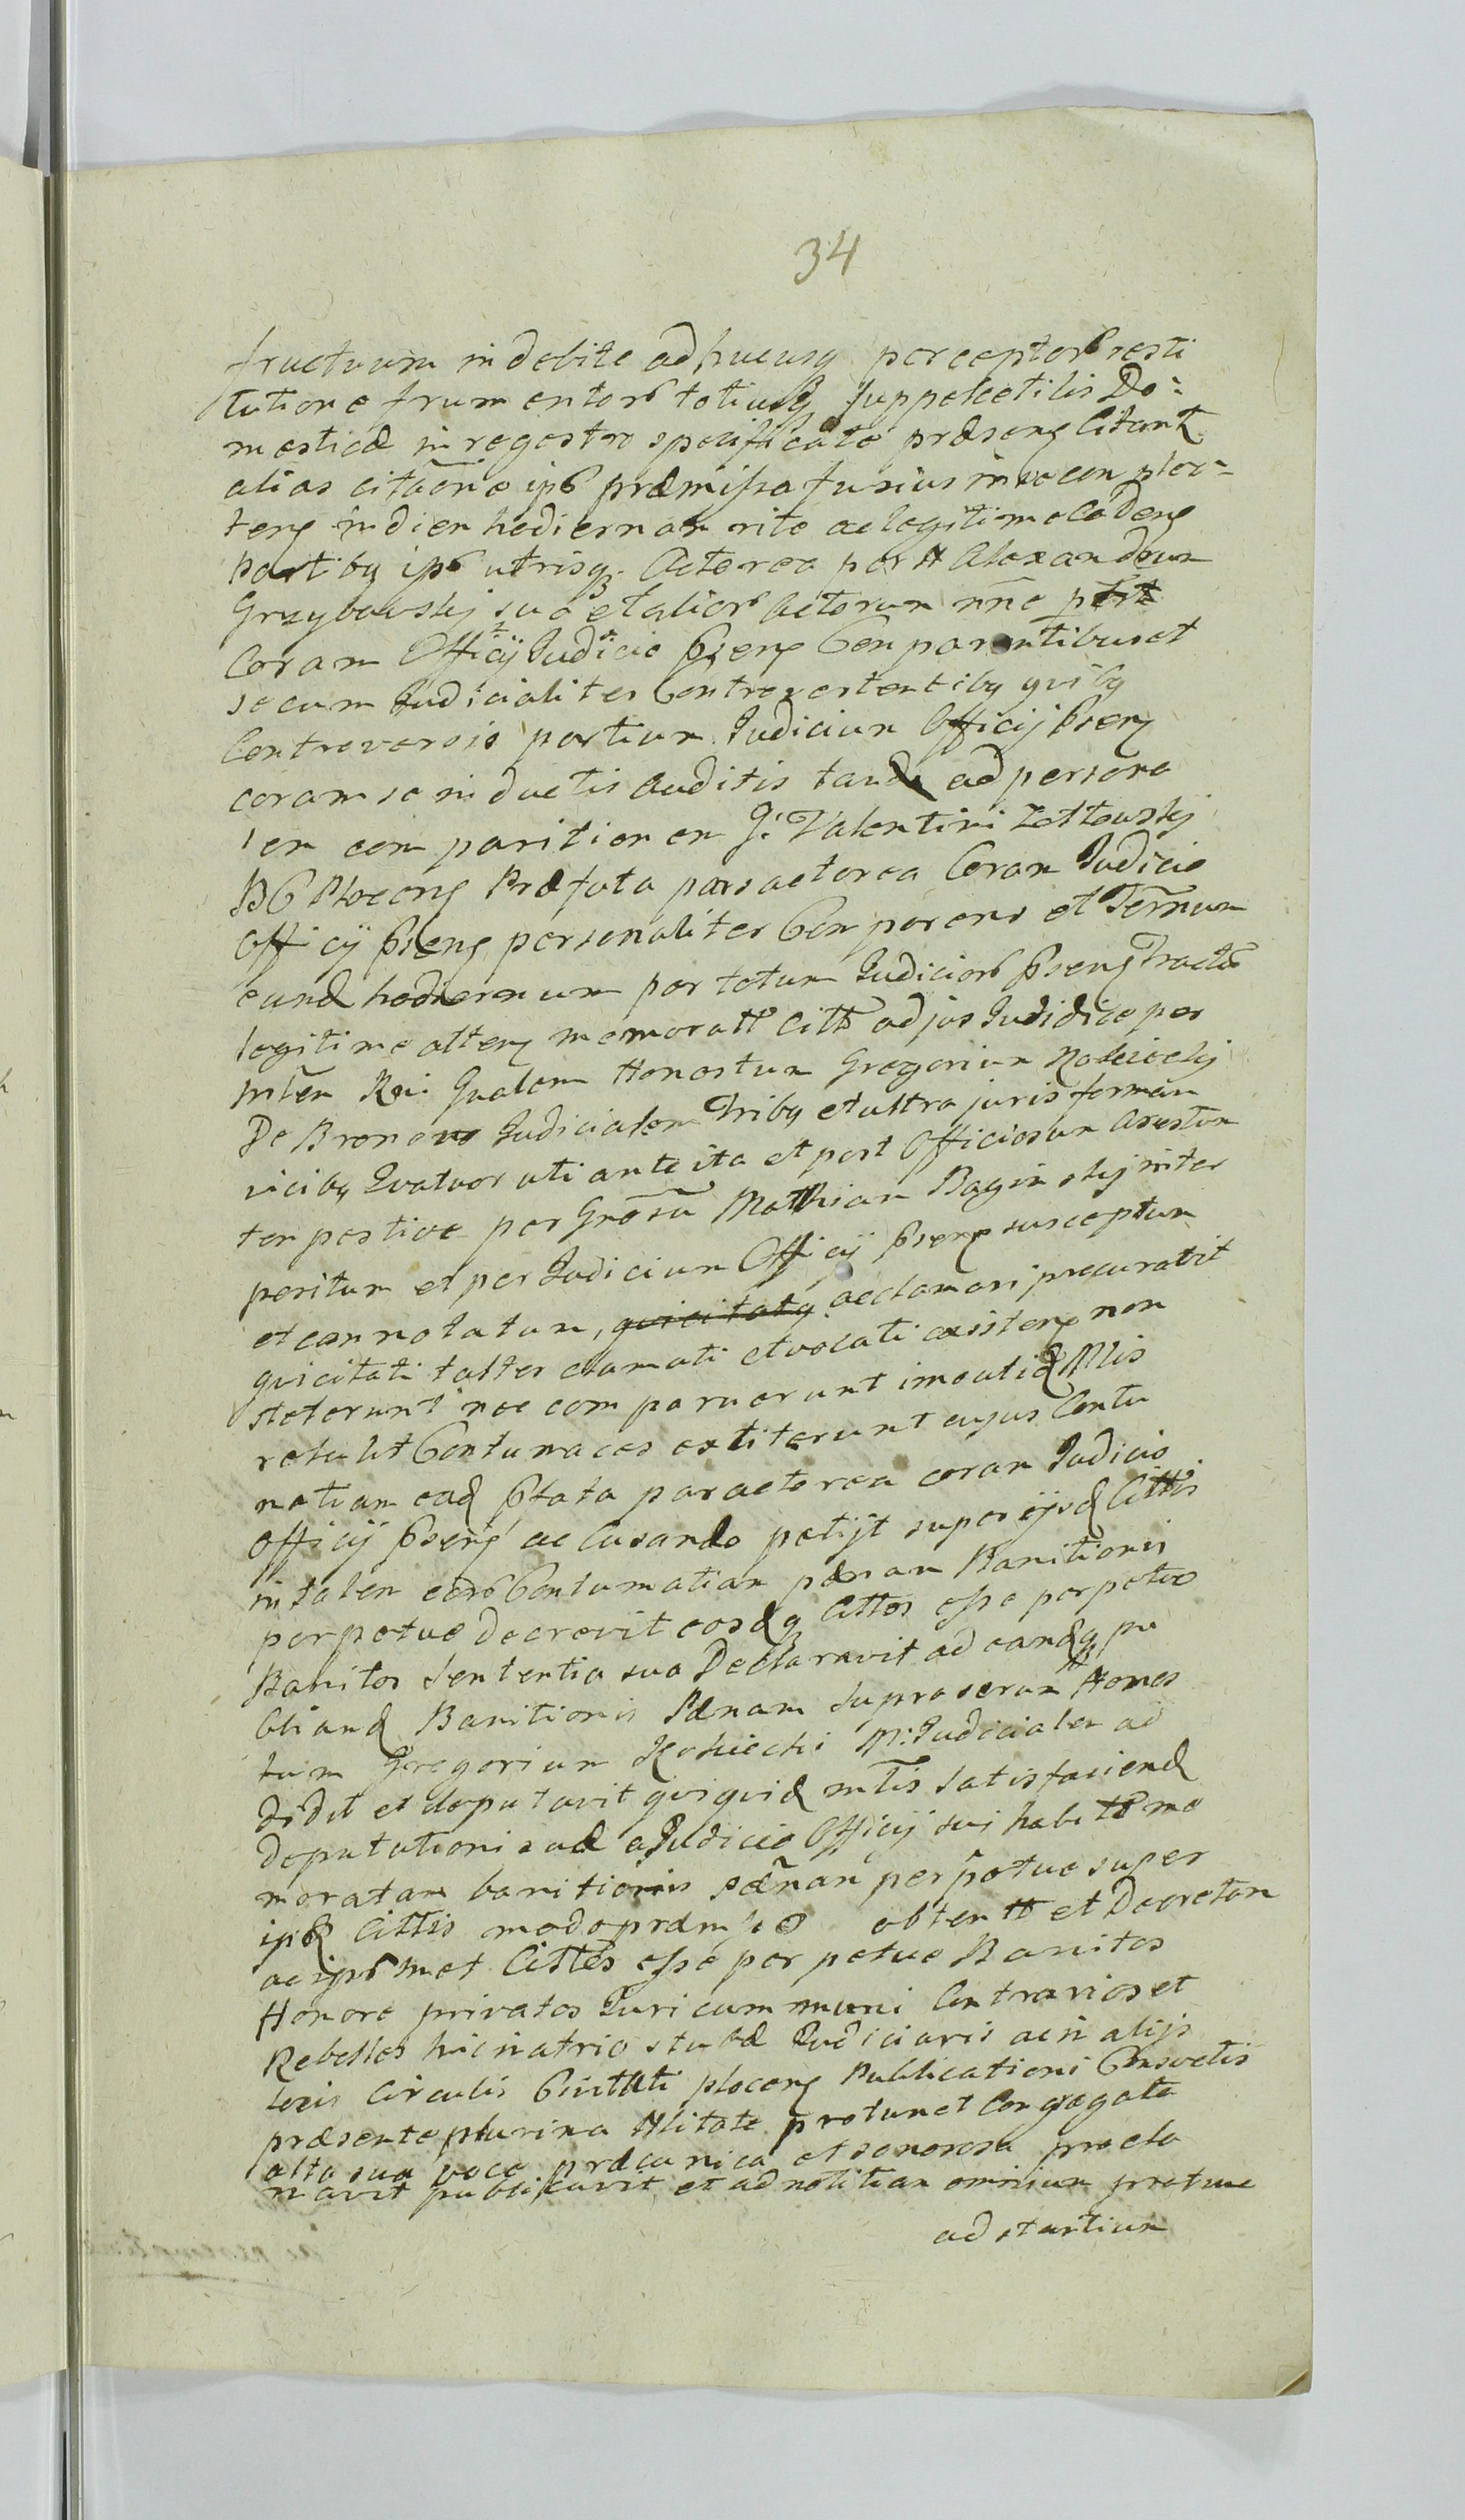 34
fructuum indebite adhucusq perceptor resti
tutione frumentor totiusq suppelectilis Do=
mesticæ in regestro specificatæ præsens Citant
alias citaõne ips præmissa fusius in se con
tens in diem hodiernam rite ac legitime Cadens
partibq ips utrisq. Actorea per H Alexandrum
Grzybowskj suo et alior Actorum nñe
Coram Officij Judicio Psens Comparentibus et
secum Judicialiter Controvertentibq quibq
Controversis partium Judicium Officij Psens
coram se inductis auditis tand ad persona
lem comparitionem G. Valentini
BG Plocens Præfata pars actorea Coram Judicio
Officij Psens personaliter Comparens et Terminum
eund hodiernum per totum Judicior Psens Tractum
legitime attens memoratt Citt ad jus Judidice per
mlem Rni Gnalem Honestum Gregorium
De Judicialem Tribq et ultra juris formam
vicibq Quatuor uti ante ita et post Officiosum Arestum
tempestive per Grosum Mathiam Baginskj inter
peritum et per Judicium Officij Psens susceptum
et connotatum, quicitatq acclamari procuravit
qui citati talter clamati et vocati existens non
steterunt nec comparuerunt imo utiq Mlis
retulit Contumaces extiterunt cujus Contu
matiam ead Pfata pars actorea coram Judicio
Officij Psens accusando petijt super ijsd Cittis
in talem eor Contumatiam pænam Banitionis
perpetuæ decrevit eosdq Cittos esse perpetuo
Banitos sententia sua Declaravit ad eandq pu
bliand Banitionis Pænam supraseram Hones
tum Gregorium M: Judicialem ad
didit et deputavit quiquid mlis satisfaciend
Deputationi ead a Judicio Officij sui habitt me
moratam banitionis pæñam perpetuæ super
ipsq Cittis modopræmisso obtentt et Decretam
ac ipsmet Cittos esse perpetuo Banitos
Honore privatos Juri communi Contrarios et
Rebelles hic in atrio stubæ Judiciaris ac in alijs
locis Circulis Civitati plocens Publicationi Consvetis
præsente plurima Nlitate protunc et Congregata
alta sua voce præconica et sonorosa procla
mavit publicavit et ad notitiam omnium protunc
ad stantium